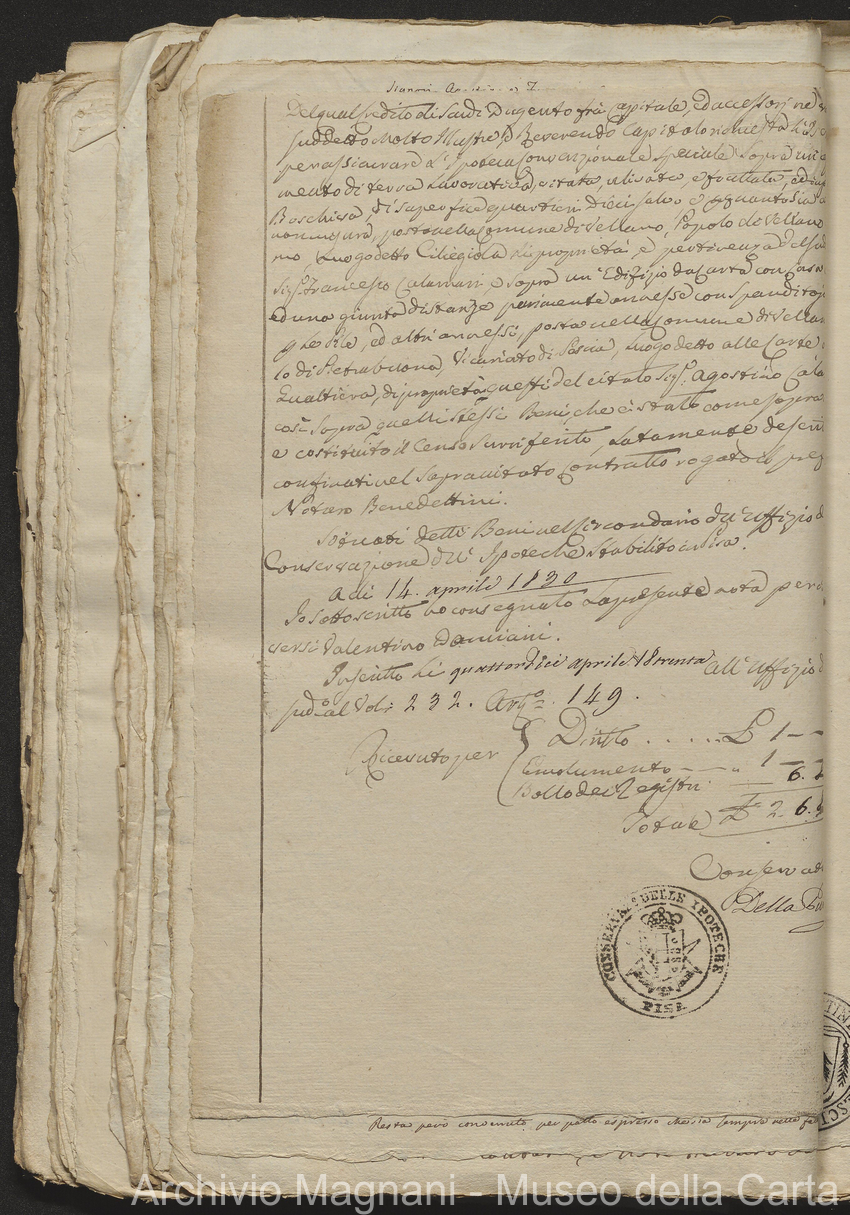 Del qual credito di Scudi Dugento frà Capitale, ed accessori ne
suddetto Molto Illustre, e Reverendo Capitolo richiesta
per assicurare L'Ipoteca Convenzionale Speciale Sopra un
mento di terra Lavorativa, vitata, ulivata, e fruttata, ed in
Boschiva, di superfice quartieri Dieci salvo e quanto sia
non misura, posto nella Comune di Vellano, Popolo di Vellano
mo, Luogo detto Ciliegiola di proprietà, e pertinenza del sud
Sigr. Francesco Calamari e sopra un'Edifizio da Carta con Casa
ed una giunta di stanze parimente annesse con Spanditojo
que Pile, ed altri annessi, posto nella Comune di Vellan
lo di Pietrabuona, Vicariato di Pescia, Luogo detto alle Carte
Gualtiera, di proprietà questi del citato Sigr. Agostino Cala
così sopra quelli stessi Beni, che è stato come sopra
e costituito il Censo surriferito, Latamente descri
confinati nel Sopracitato Contratto rogato
Notaro Benedettini.
Situati detti Beni nel Circondario dell'Uffizio
Conservazione dell'Ipoteche stabilito in Pisa.
A dì 14. aprile 1830
Io sottoscritto ho consegnato La presente nota per
Valentino Damiani.
Inscritto Li quattordici aprile 18trenta all'Uffizio
sudo. al Vol: 232. Arto. 149.
Ricevuto per
Diritto ...... £ 1 —
Emolumento — — " 1 —
Bollo dei Registri 6.
Totale £ 2. 6.
Conservad
Della
CONSERVAT.E DELLE IPOTECHE
PISA
Resta però convenuto per patto espresso che sia sempre nelle
Archivio Magnani - Museo della Carta